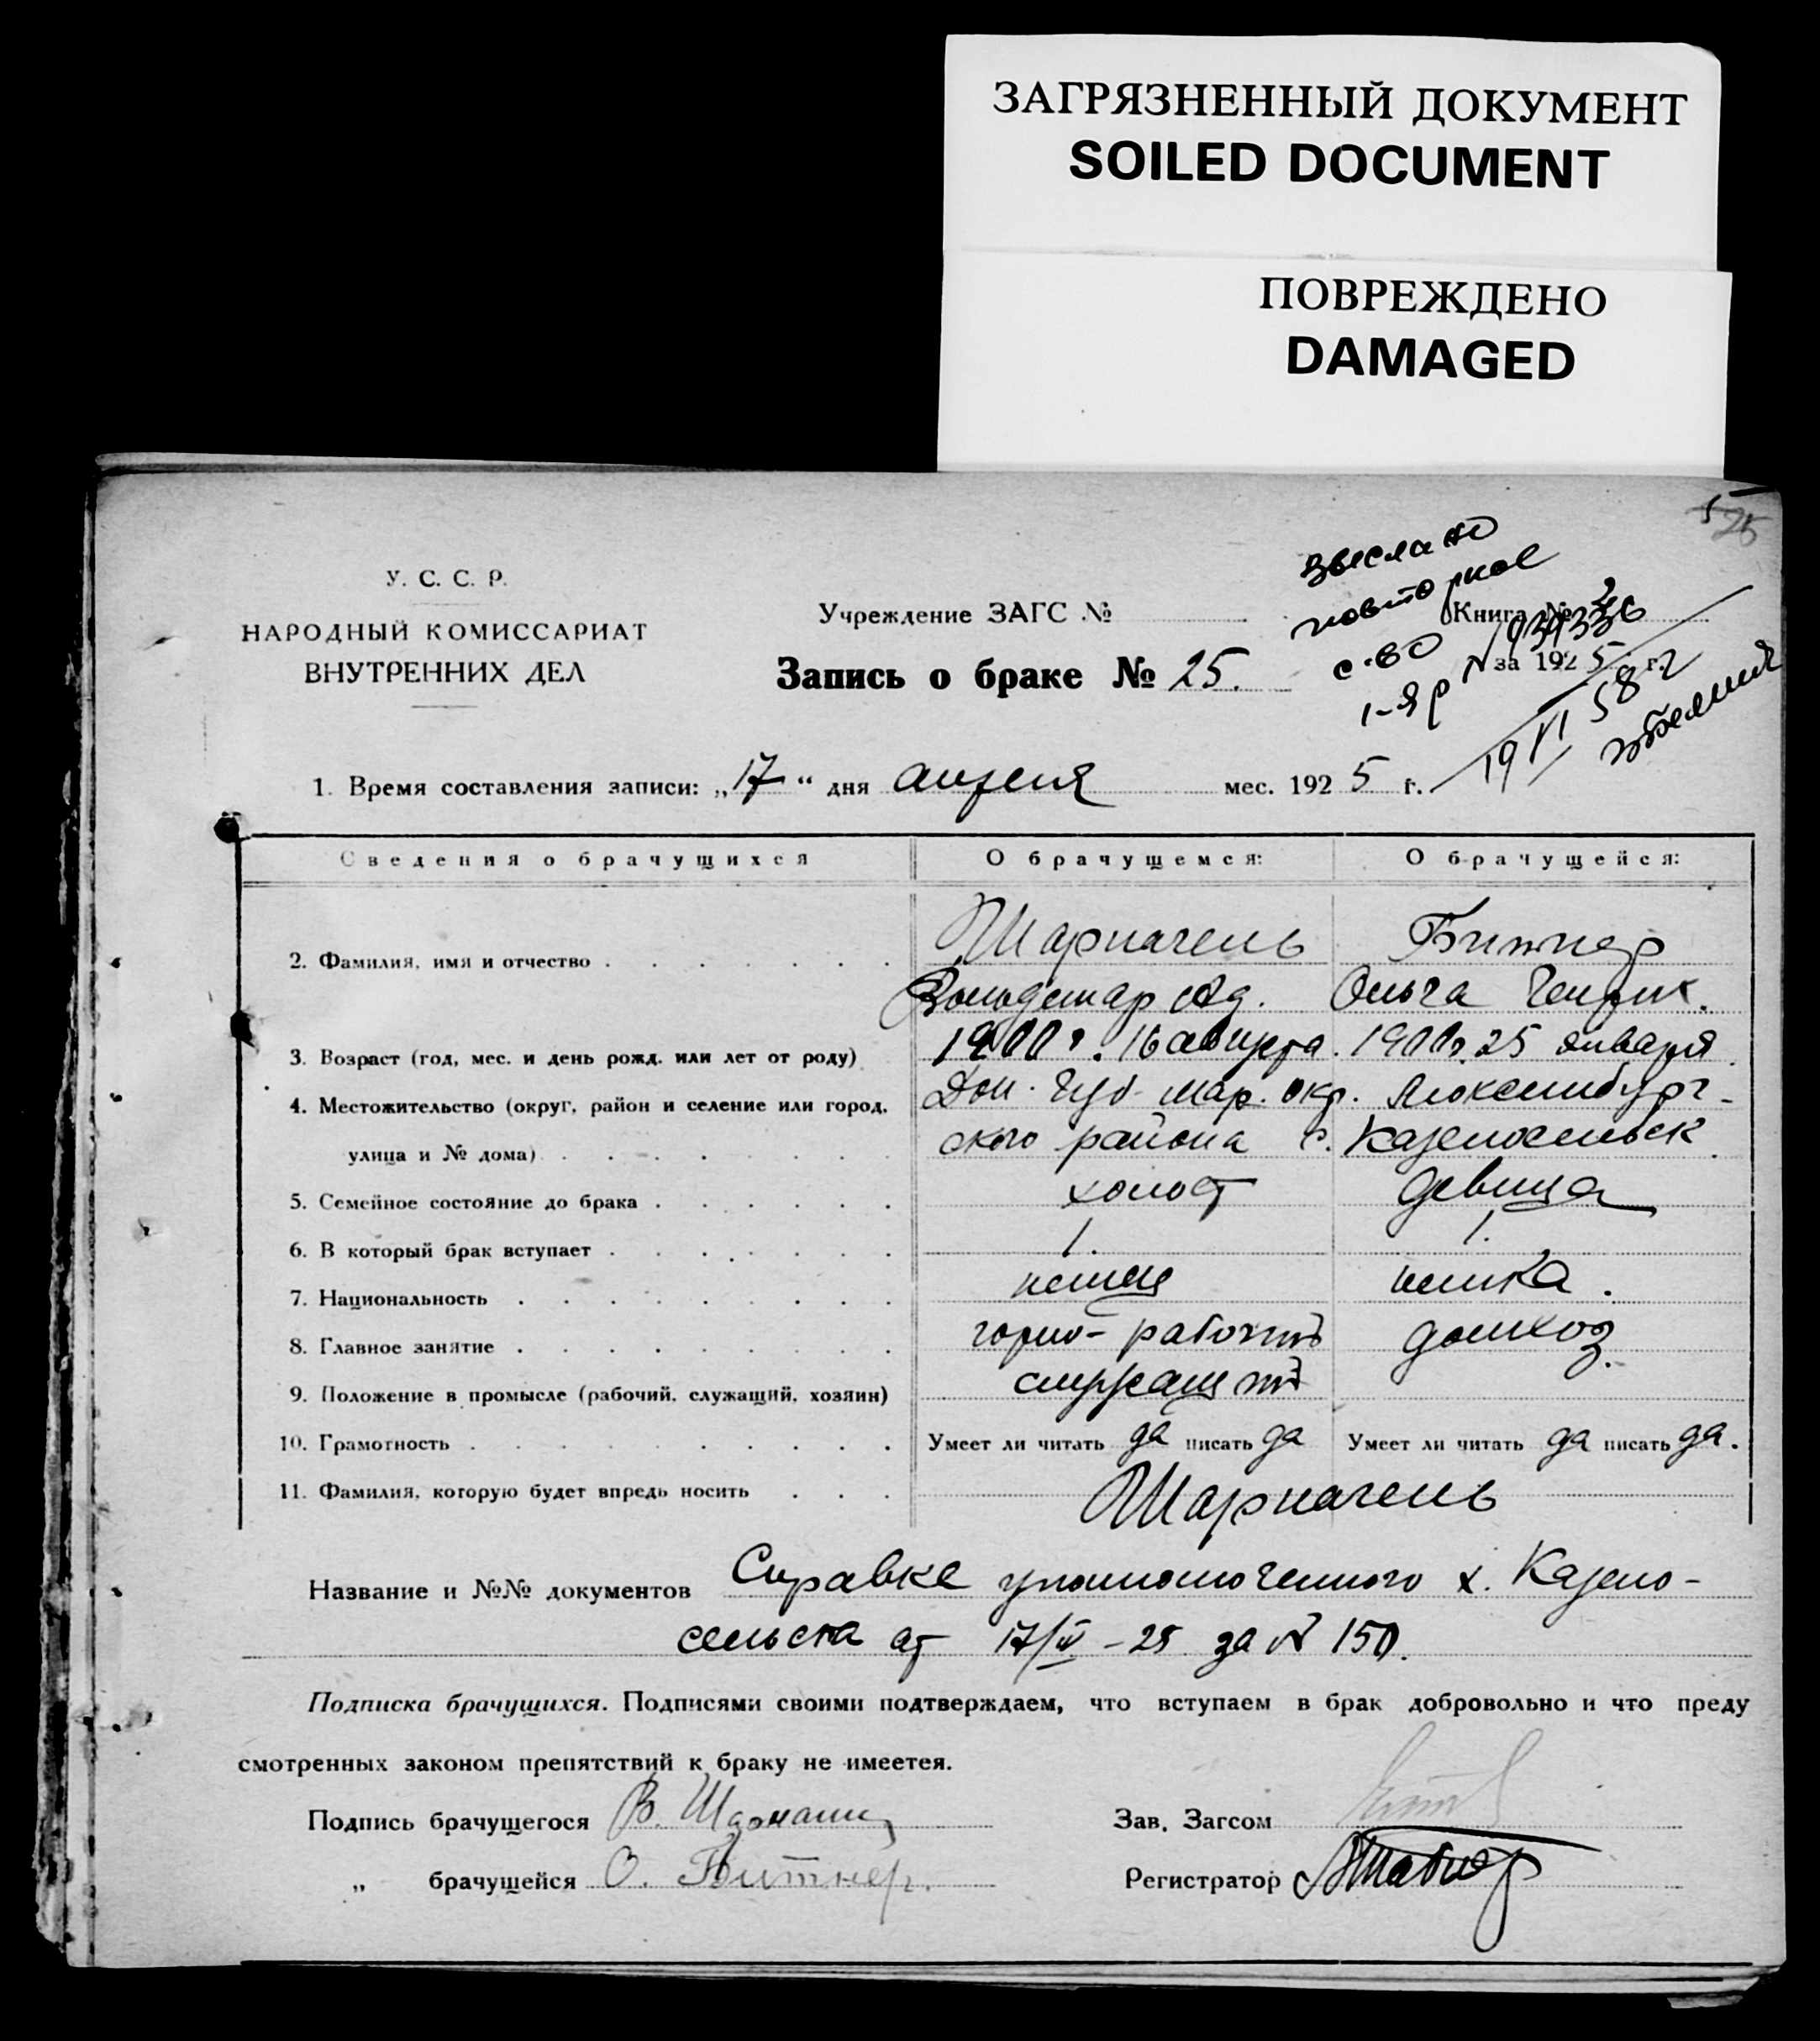 ЗАГРЯЗНЕННЫЙ ДОКУМЕНТ
SOILED DOCUMENT
ПОВРЕЖДЕНО
DAMAGED
25
У. С. С. Р.
НАРОДНЫЙ КОМИССАРИАТ
ВНУТРЕННИХ ДЕЛ
Учреждение ЗАГС №
Книга № 2
Запись о браке № 25.
за 1925 г.
повторное
с-во
I-ЯР №
19 VI 58 г
1. Время составления записи: „17“ дня апреля мес. 1925 г.
Сведения о брачущихся О брачущемся: О брачущейся:
2. Фамилия, имя и отчество Шарпачель Битнер
Вольдемар Ад. Ольга Генрих.
3. Возраст (год, мес. и день рожд. или лет от роду) 1900 г. 16 августа. 1900 г. 25 января
4. Местожительство (округ, район и селение или город, Дон. Губ. Мар. окр. Люксембург-
улица и № дома) ского района с. Казеносельск.
5. Семейное состояние до брака холост девица
6. В который брак вступает 1. 1.
7. Национальность немец немка.
8. Главное занятие рабочий домхоз.
9. Положение в промысле (рабочий, служащий, хозяин) служащий
10. Грамотность Умеет ли читать да писать да Умеет ли читать да писать да.
11. Фамилия, которую будет впредь носить Шарпачель
Название и №№ документов Справке уполномоченного х. Казено-
сельска от 17/IV – 25 за № 150.
Подписка брачущихся. Подписями своими подтверждаем, что вступаем в брак добровольно и что преду
смотренных законом препятствий к браку не имеетея.
Подпись брачущегося В. Зав. Загсом
„ брачущейся О. Битнер. Регистратор